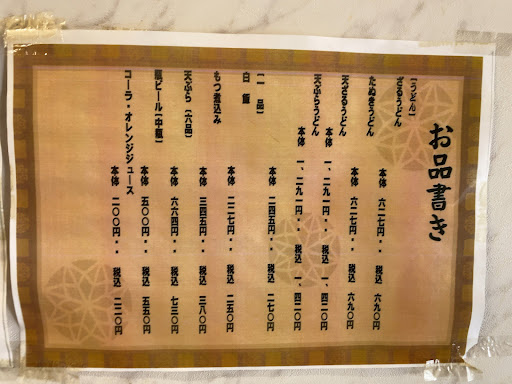 お品書き
【うどん】
ざるうどん 本体 六二七円・・ 税込 六九〇円
たぬきうどん 本体 六二七円・・ 税込 六九〇円
天ざるうどん 本体 一、二九一円・・ 税込 一、四二〇円
天ぷらうどん 本体 一、二九一円・・ 税込 一、四二〇円
本体 二四五円・・ 税込 二七〇円
【一品】
白飯 本体 二二七円・・ 税込 二五〇円
もつ煮込み 本体 三四五円・・ 税込 三八〇円
天ぷら【六品】 本体 六六四円・・ 税込 七三〇円
瓶ビール【中瓶】 本体 五〇〇円・・ 税込 五五〇円
コーラ・オレンジジュース 本体 二〇〇円・・ 税込 二二〇円